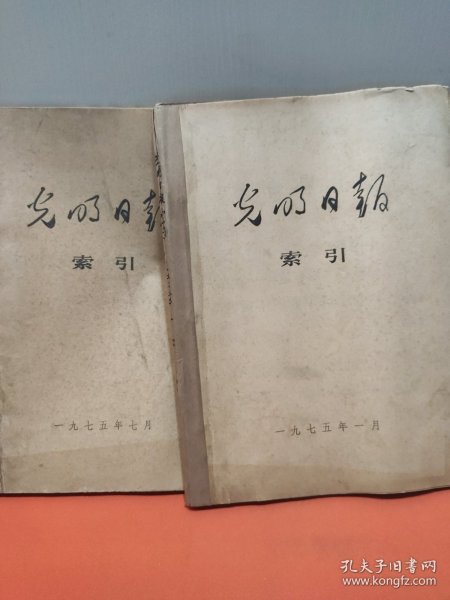 光明日报
索引
一九七五年七月
光明日报
索引
一九七五年一月
孔夫子旧书网
www.kongfz.com